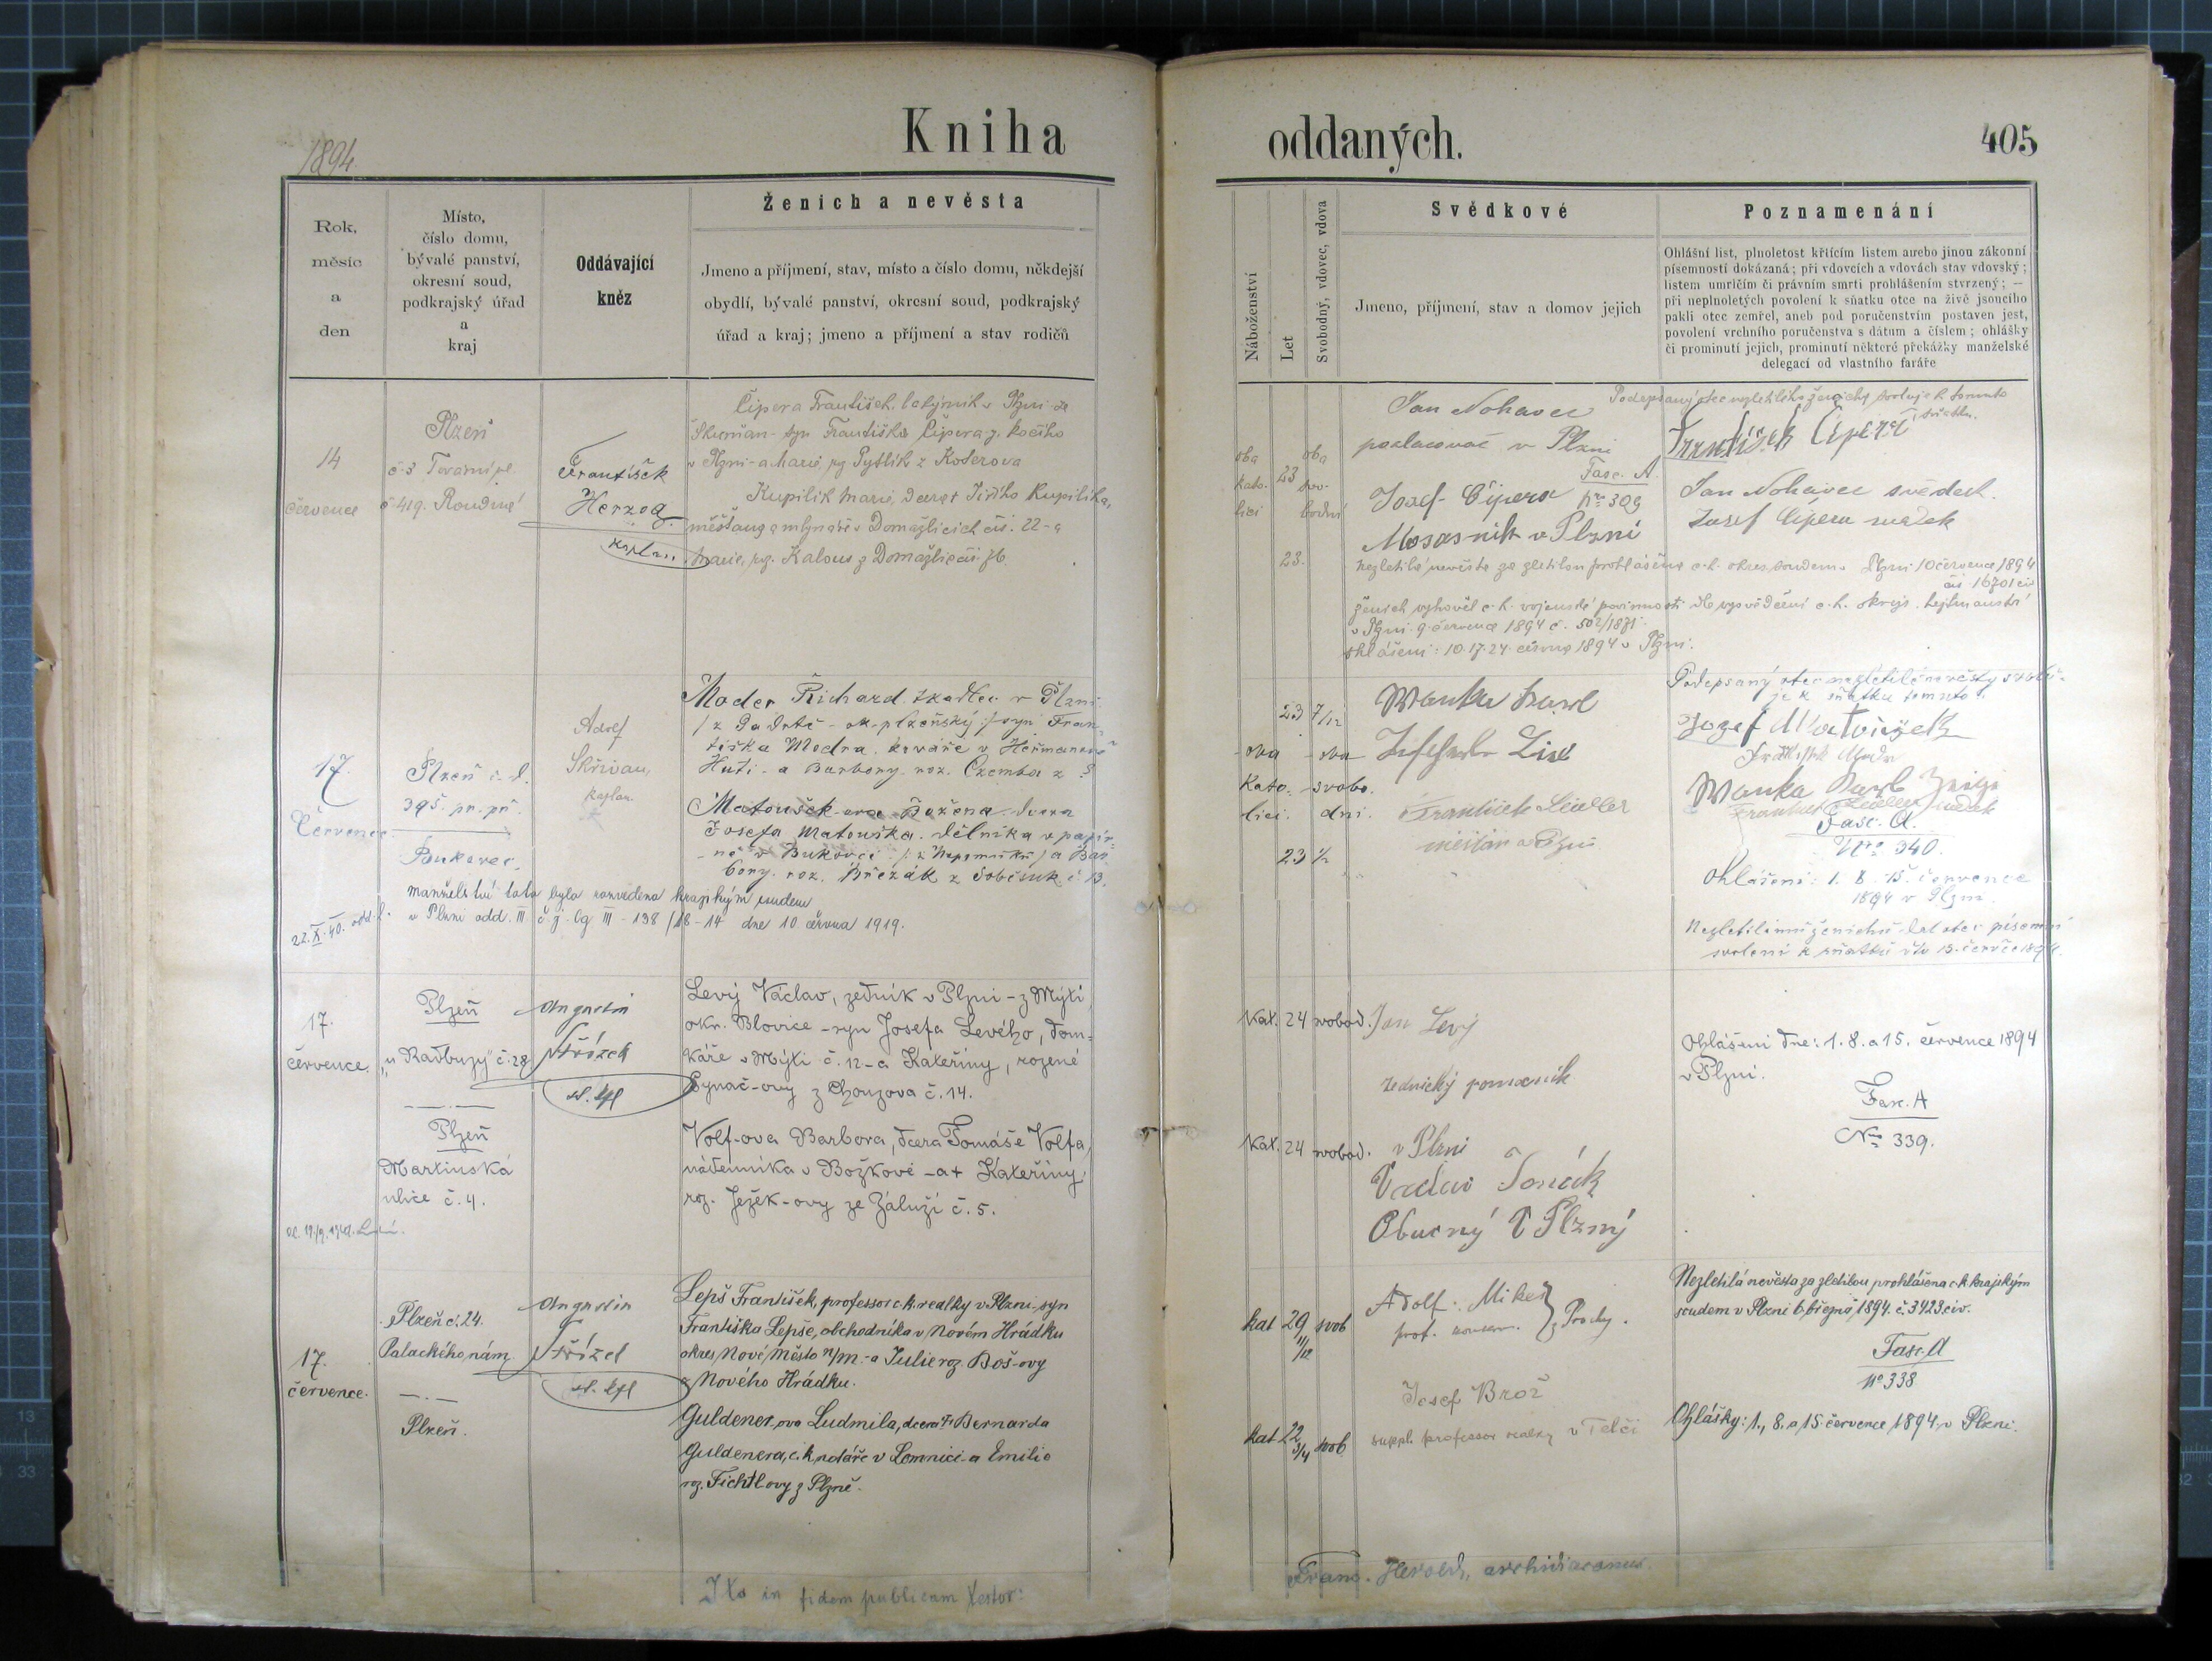 Kniha
oddaných.
405
1894.
Rok,
měsíc
a
den
Místo,
číslo domu,
bývalé panství,
okresní soud,
podkrajský úřad
a
kraj
Oddávající
kněz
Ženich a nevěsta
Jmeno a příjmení, stav, místo a číslo domu, někdejší
obydlí, bývalé panství, okresní soud, podkrajský
úřad a kraj; jmeno a příjmení a stav rodičů
Náboženství
Let
Svobodný, vdovec, vdova
Svědkové
Jmeno, příjmení, stav a domov jejich
Poznamenání
Ohlášní list, plnoletost křticím listem aneb jinou zákonní
písemností dokázaná; při vdovcích a vdovách stav vdovský;
listem umrlčím či právním smrti prohlášením stvrzený; —
při neplnoletých povolení k sňatku otce na živě jsoucího
pakli otec zemřel, aneb pod poručenstvím postaven jest,
povolení vrchního poručenstva s dátum a číslem; ohlášky
či prominutí jejich, prominutí některé překážky manželské
delegací od vlastního faráře
14
července
Plzeň
č. 3 Tovární ul.
č. 419. Roudná
František
Herzog
kaplan.
Čipera František,
v Plzni ze
Skvrňan - syn Františka Čipera,
kočího
v Plzni - a Marie, roz. Pytlík z Koterova
Kupilík Marie, dcera † Jiřího Kupilíka,
měšťana a mlynáře v Domažlicích čís. 22 - a
Marie, roz. Kalous z Domažlic čís. 76.
oba
kato-
líci
23
oba
svo-
bodní
23.
Jan Nohavec
pozlacovač v Plzni
Fasc. A.
Nro 309
Josef Čipera
Mosasník v Plzni
Podepsaný otec nezletilého ženicha svoluje k tomuto
sňatku.
František Čipera
Jan Nohavec svědek.
Josef Čipera svědek
nezletilá nevěsta za zletilou prohlášena c. k. okres. soudem v Plzni 10 července 1894
čís. 16701 civ
ženich vyhověl c. k. vojenské povinnosti dle vysvědčení c. k. okres. hejtmanství
v Plzni 9. července 1894 č.
ohlášení: 10. 17. 24. června 1894 v Plzni.
17.
Červenec
Plzeň
395. pr. př.
Boukovec
Adolf
Skřivan,
kaplan
Mader Richard, tkadlec v Plzni
ok. plzeňský / syn Fran-
tiška Madra,
v Heřmanově
Huti - a Barbory, roz. Czemba z
Matoušek-ova Božena, dcera
Josefa Matouška, dělníka v papír-
ně v Bukovci
a Bar-
bory, roz. Březák z Soběsuk č. 13.
Manželství toto bylo rozvedeno krajským soudem
v Plzni odd. III č. j. Cg III - 138/18 - 14 dne 10. června 1919.
22. X. 40.
23 7/12
-ova
Kato-
líci.
-oba
svobo-
dni.
23 1/2
Wanka Karl
František Lüdler
měšťan v Plzni
Podepsaný otec nezletilé nevěsty svolu-
je k sňatku tomuto.
Josef Matoušek
Wanka Karl Zeuge
Fasc. A.
Nro 340.
Ohlášení: 1. 8. 15. července
1894 v Plzni
Nezletilému ženichu dal otec písemné
svolení k sňatku
17.
července
Plzeň
„u Radbuzy" č. 28
Plzeň
Martinská
ulice č. 4.
Augustin
Střízek
Levý Václav, zedník v Plzni - z Mýti
okr. Blovice - syn Josefa Levého, dom-
káře v Mýti č. 12 - a Kateřiny, rozené
z Chouzova č. 14.
Volf-ova Barbora, dcera Tomáše Volfa,
nádenníka v Božkově - a † Kateřiny,
roz. Ježek-ovy ze Záluží č. 5.
Kat. 24 svobod.
Kat. 24 svobod.
Jan Levý
zednický pomocník
v Plzni
Václav
Obucný v Plzný
Ohlášení dne: 1. 8. a 15. července 1894
v Plzni.
Fasc. A
Nro 339.
17.
července.
Plzeň č. 24.
Palackého nám.
Plzeň.
Augustin
Střízek
Lepš František, professor c. k. realky v Plzni - syn
Františka Lepše, obchodníka v Novém Hrádku
okres Nové Město n/M. - a Julie roz. Boš-ovy
z Nového Hrádku.
Guldener-ova Ludmila, dcera † Bernarda
Guldenera, c. k. notáře v Lomnici - a Emilie
roz. Fichtl-ovy z Plzně.
kat 29 11/12 svob
kat 22 3/4 svob
Adolf Mikeš
prof. konserv.
Prahy.
Josef Brož
suppl. professor realky v Telči
Nezletilá nevěsta za zletilou prohlášena c. k. krajským
soudem v Plzni 6. března 1894. č. 3423 civ.
Fasc. A
No 338
Ohlášky: 1., 8. a 15 července 1894, v Plzni.
Ita in fidem publicam testor:
Franc. Herold, archidiaconus.